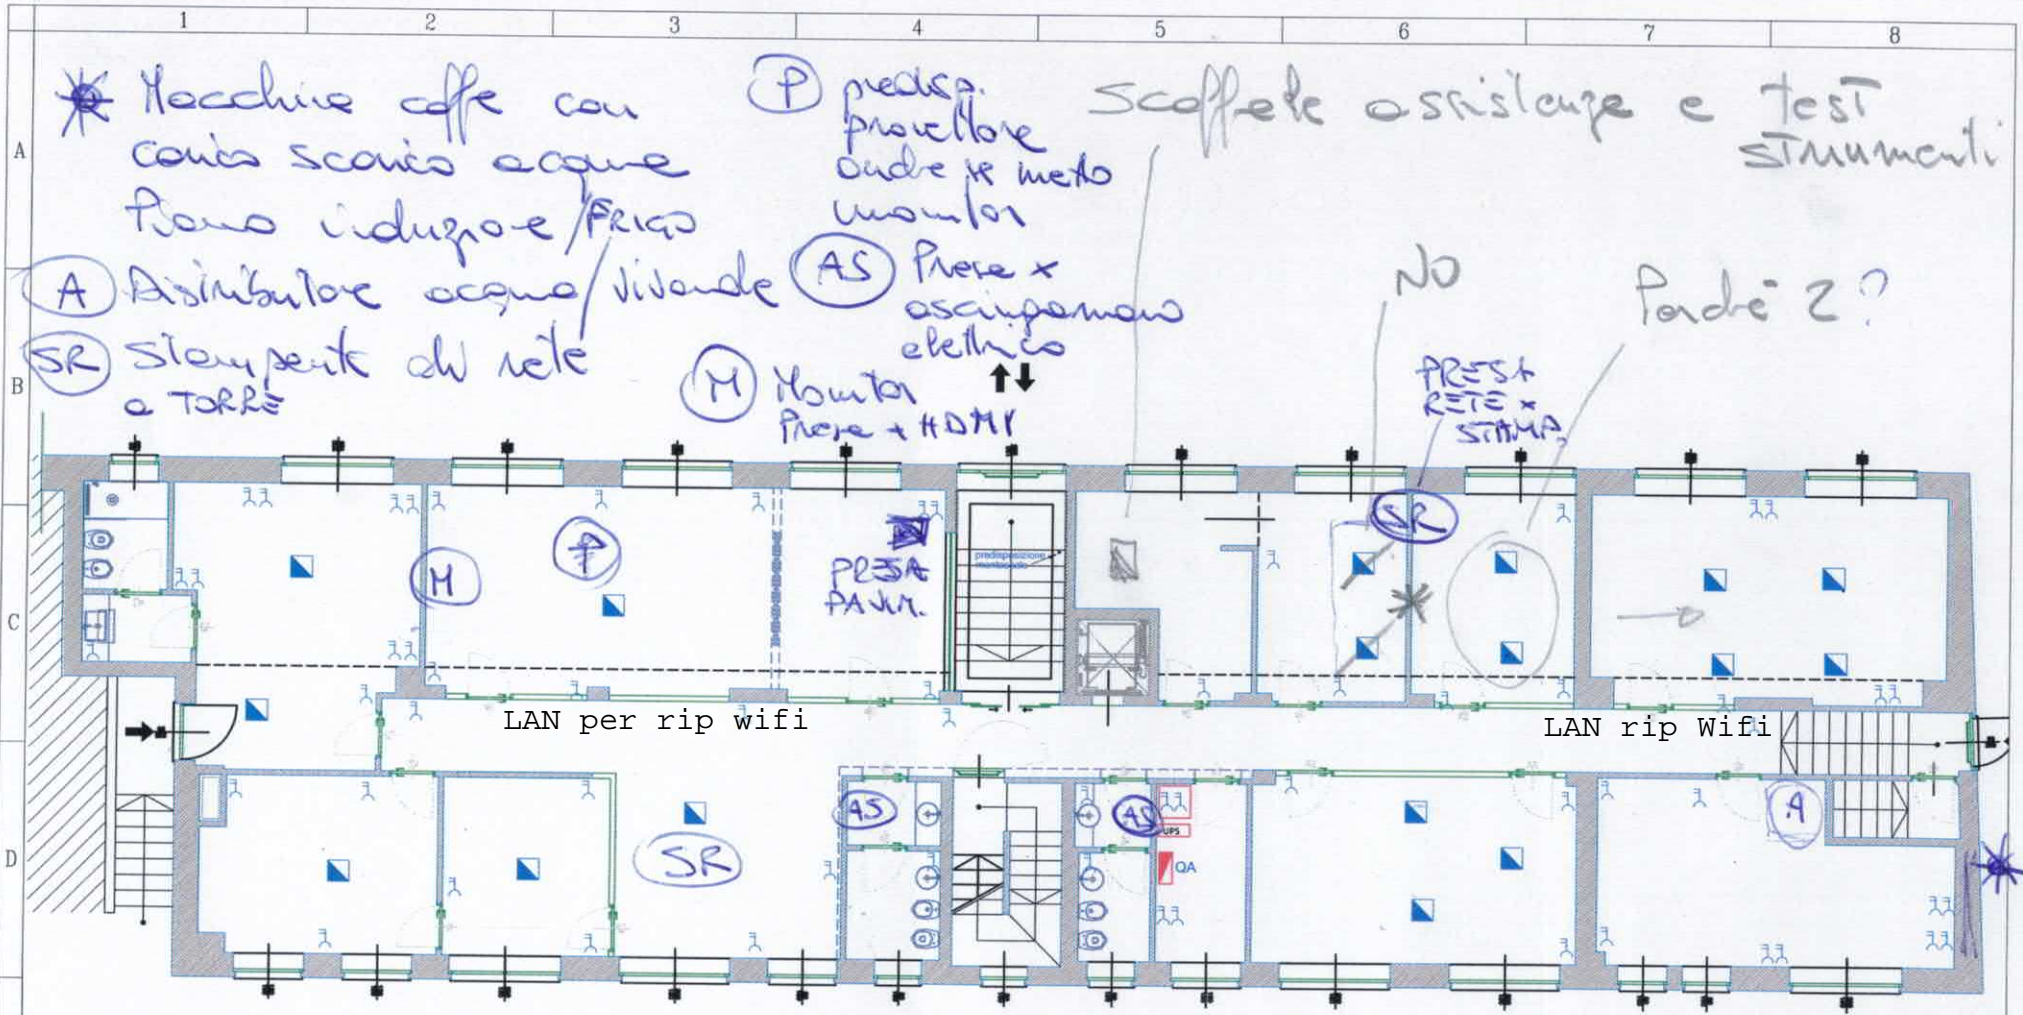 1 2 3 4 5 6 7 8
A
B
C
D
Macchina caffe con
carico scarico acqua
Piano induzione/FRIGO
A Distributore acqua/vivande
SR Stampante di rete
a TORRE
P predisp.
proiettore
anche se metto
monitor
AS Presa x
asciugamano
elettrico
M Monitor
Presa + HDMI
Scaffale assistenze e test
strumenti
NO
Perché 2?
PRESA
RETE x
STAMP.
SR
M
P
PRESA
PAVIM.
predisposizione
LAN per rip wifi
LAN rip Wifi
AS
AS
UPS
QA
A
SR